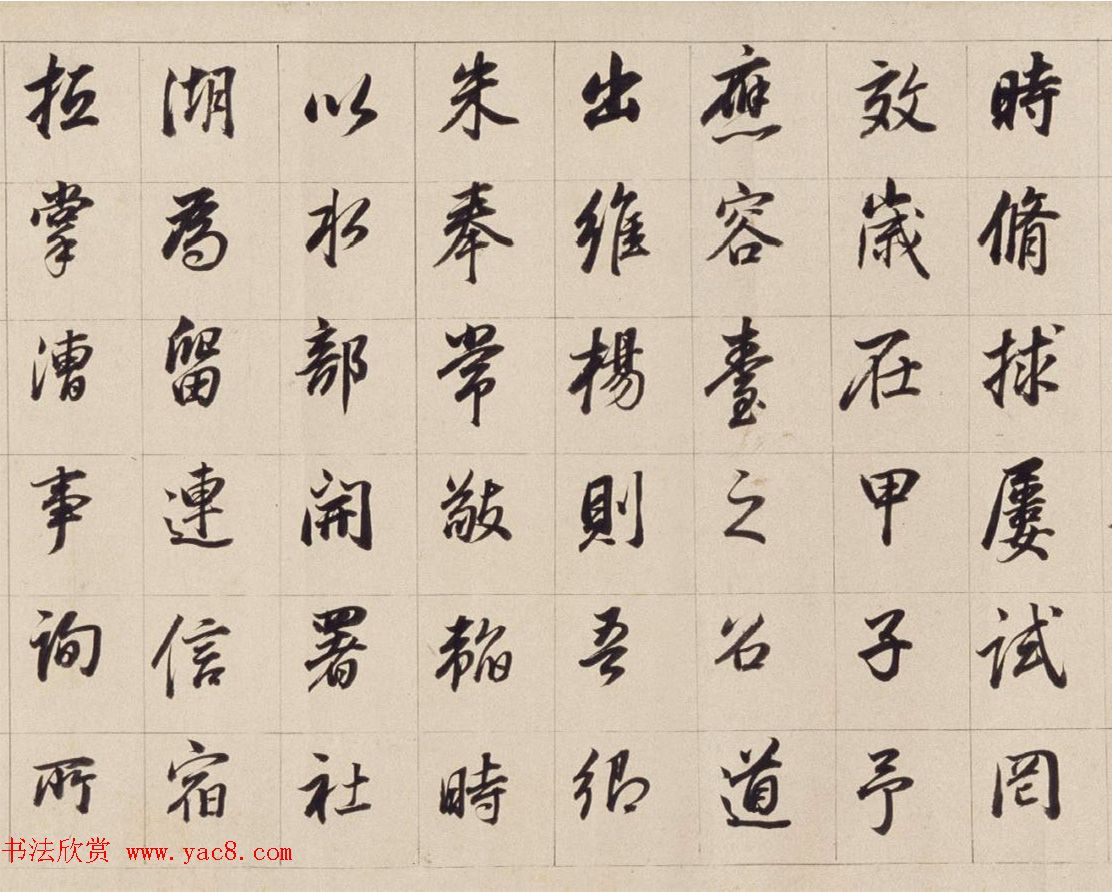 時脩捄屢試罔
效歲在甲子予
應容臺之召道
出維楊則吾鄉
朱奉常敬韜時
以水部開署社
湖為留連信宿
抵掌漕事詢所
书法欣赏 www.yac8.com